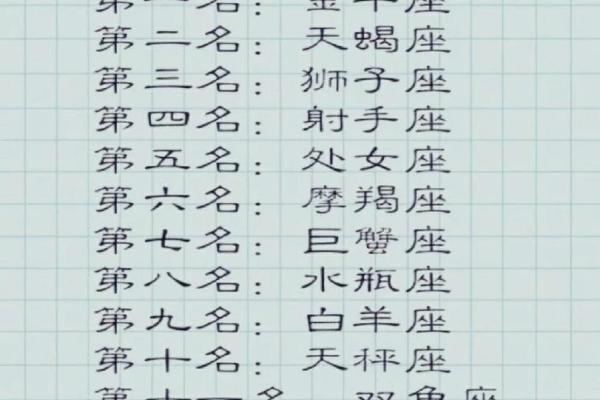 第一名：金牛座
第二名：天蝎座
第三名：狮子座
第四名：射手座
第五名：处女座
第六名：摩羯座
第七名：巨蟹座
第八名：水瓶座
第九名：白羊座
第十名：天秤座
第十一名 双鱼座